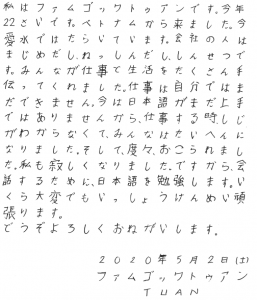 私はファムゴックトゥアンです。今年
22さいです。ベトナムから来ました。今
愛水ではたらいています。会社の人は
まじめだし、ねっしんだし、しんせつで
す。みんなが仕事で生活をたくさん手
伝ってくれました。仕事は自分ではま
だできません。今は日本語がまだ上手
ではありませんから、仕事する時、しじ
がわからなくて、みんなはたいへんに
なりました。そして、度々、おこられまし
た。私も寂しくなりました。ですから、会
話するために、日本語を勉強します。い
くら大変でもいっしょうけんめい頑
張ります。
どうぞよろしくおねがいします。
2020年5月2日(土)
ファムゴックトゥアン
TUAN